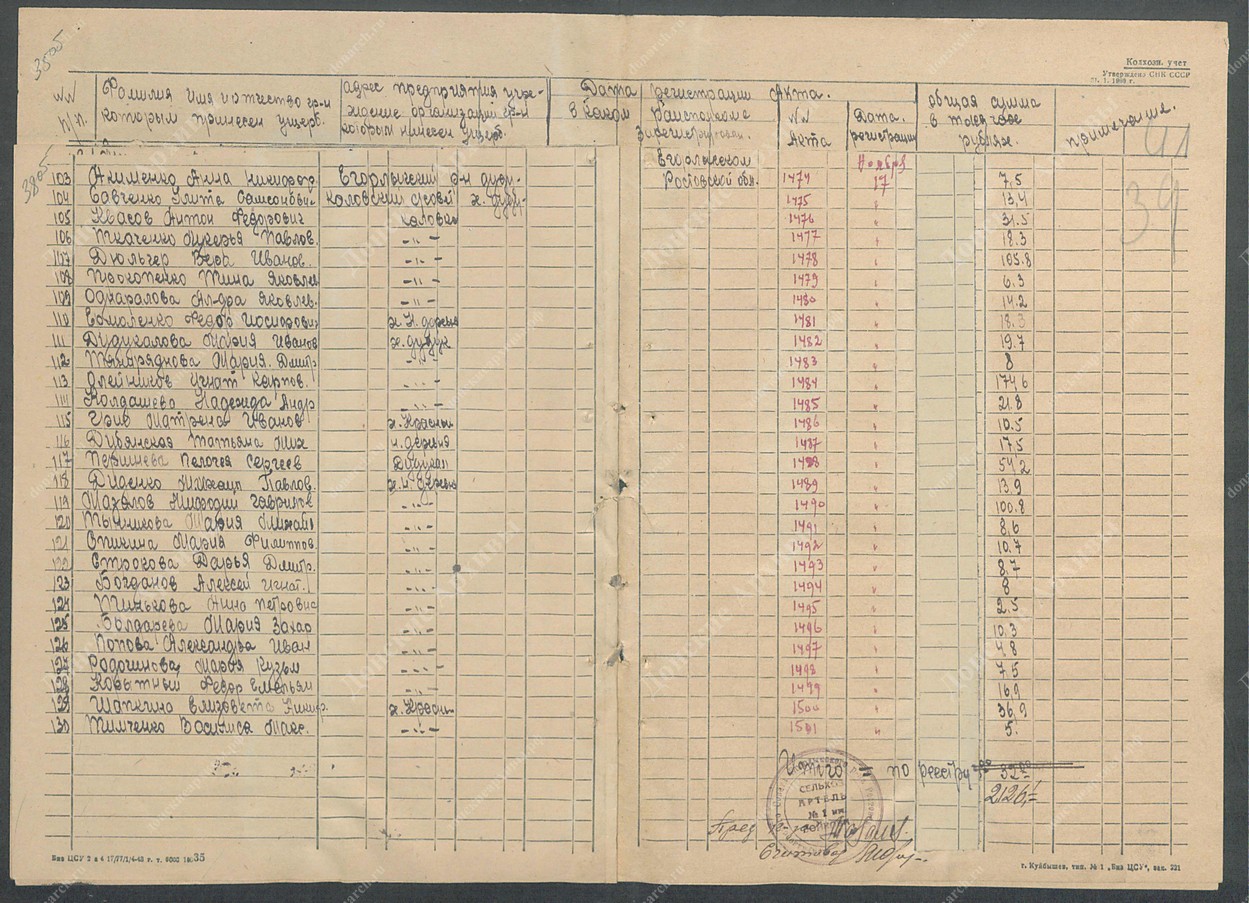 3805
Колхозн. учет
Утверждено СНК СССР
№№ п/п. Фамилия имя и отчество гр-н которым принесен ущерб. адрес предприятия учреждение организаций гр-н которым нанесен ущерб. Дата регистрации Акта. общая сумма в тысячах рублях. примечание.
в каком Райисполкоме Зарегистрирован. №№ Акта Дата регистрации
41
3805
39
Егорлыкском Ноября
103 Акименко Анна Никифор Егорлыкский р-н Ростовской обл. 1474 17 7,5
104 Савченко Елита Самсонович каловский с/совет х. 1475 " 13,4
105 Квасов Антон Федорович каловка 1476 " 31.5
106 Ткаченко Лукерья Павлов. -"- 1477 " 18.3
107 Дюльгер Вера Иванов. -"- 1478 " 105.8
108 Прокопенко Нина Яковлев -"- 1479 " 6.3
109 Однаралова Ал-дра Яковлев. -"- 1480 " 14.2
110 Ермоленко Федор 1481 " 18.3
111 Дудукалова Мария Иванов х. дудук 1482 " 19.7
112 Мария. Дмитр -"- 1483 " 8
113 Олейников Игнат Карпов. -"- 1484 " 174,6
114 Колдашева Надежда Андр -"- 1485 " 21.8
115 Грив Матрена Иванов х. Красный 1486 " 10.5
116 Дибянская Татьяна Мих 1487 " 17,5
117 Пелагея Сергеев Дудукал 1488 " 54,2
118 Диденко Михаил Павлов. 1489 " 13.9
119 Мазалов Мифодий Гаврилов -"- 1490 " 100.8
120 Тычникова Мария Михайл -"- 1491 " 8,6
121 Опикина Мария Филиппов. -"- 1492 " 10.7
122 Строкова Дарья Дмитр. -"- 1493 " 8.7
123 Богданов Алексей Игнат. -"- 1494 " 8
124 Минькова Анна Петровна -"- 1495 " 2.5
125 Болдарева Мария Захар -"- 1496 " 10.3
126 Попова Александра Иван -"- 1497 " 4,8
127 Родочинова Марья Кузьм -"- 1498 " 7.5
128 Корытный Федор Емельян -"- 1499 " 16,9
129 Шапкина Елизавета Никиф. х. Красн 1500 " 36,9
130 Тимченко Василиса Макс. -"- 1501 " 5.
Итого по реестру
2126,=
СЕЛЬХОЗ АРТЕЛЬ № 1 им.
Пред.
Счетовод
Биз ЦСУ 2 д 4 17/77/1/4-43 г. т. 35
г. Куйбышев, тип. № 1 „Биз ЦСУ", зак. 221